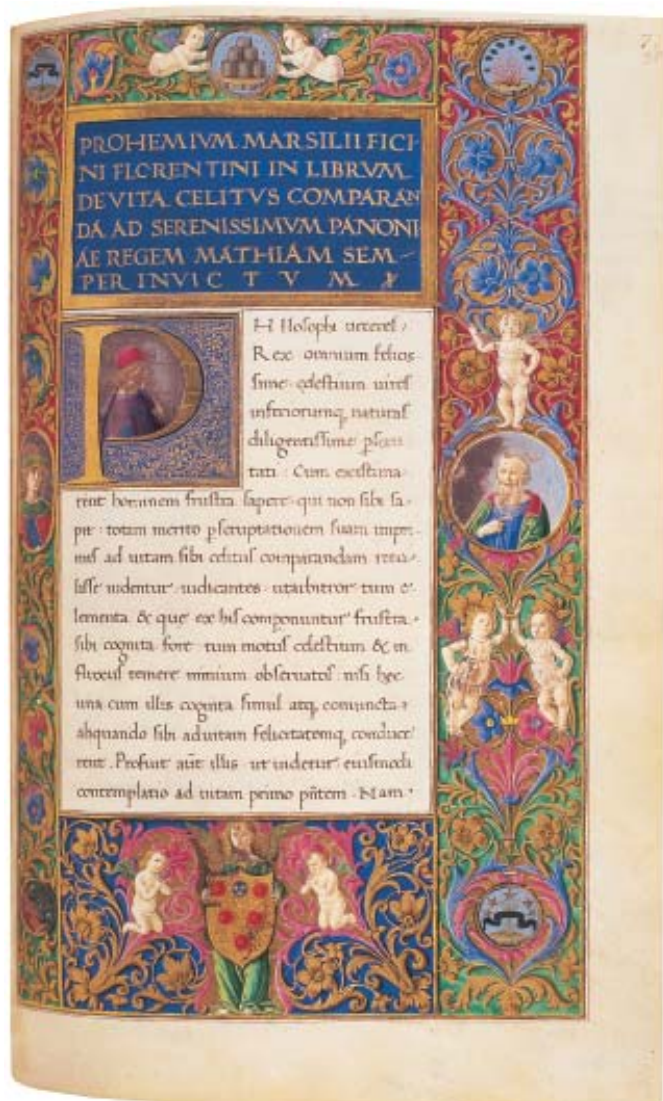 PROHEMIVM MARSILII FICI-
NI FLORENTINI IN LIBRVM
DE VITA CELITVS COMPARAN
DA AD SERENISSIMVM PANONI
AE REGEM MATHIAM SEM-
PER INVICTVM
PHIlosophi ueteres
Rex omnium felicis
sime celestium uires
inferiorumq naturas
diligentissime pscru
tati Cum existima
rent hominem frustra sapere qui non sibi sa
pit totam merito pscruptationem suam inpri
mis ad uitam sibi celitus comparandam retu
lisse uidentur iudicantes utarbitror tum e
lementa & que ex his componuntur frustra
sibi cognita fore tum motus celestium & in
fluxus temere nimium obseruatos nisi hec
una cum illis cognita simul atq coniuncta
aliquando sibi aduitam felicitatemq conduce
rent. Profuit aut illis ut uidetur euismodi
contemplatio ad uitam primo pñtem. Nam